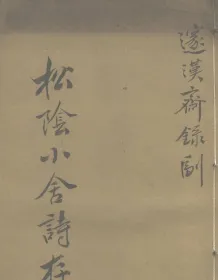 邃漢齋錄副
松陰小舍詩存